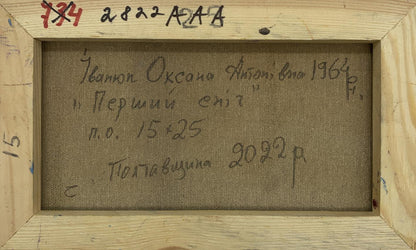 734 2822AAA
Іванюк Оксана Антонівна 1964 р.
"Перший сніг"
п.о. 15×25
с. Полтавщина 2022 р.
15